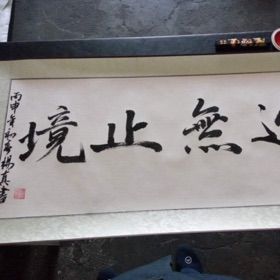 無止境
丙申年初春楊真書